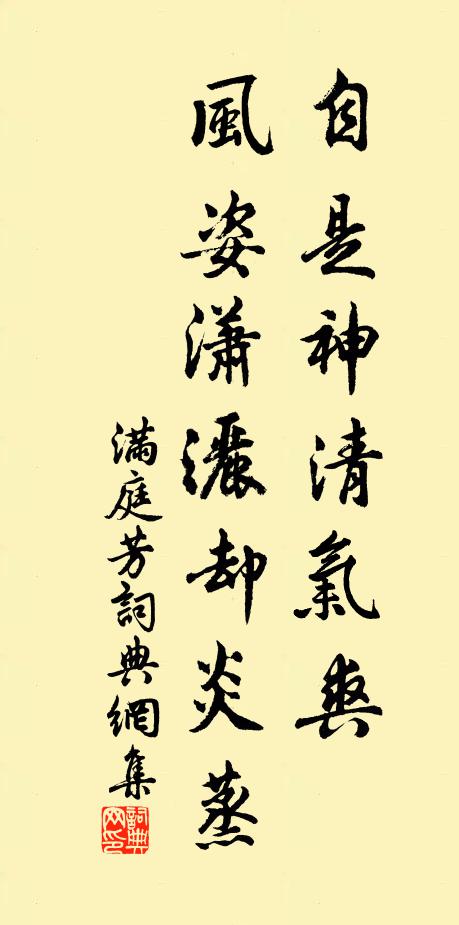 自是神清氣爽
風姿瀟灑却炎蒸
滿庭芳詞典網集
詞典網印